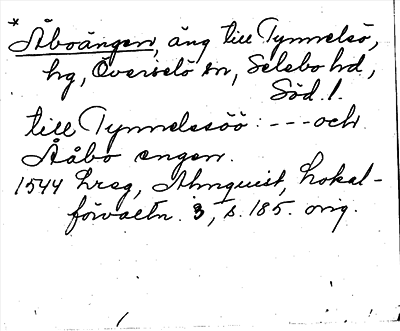 * Åboängen, äng till Tynnelsö,
hg, Överselö sn, Selebo hd,
Söd. l.
till Tynnelssöö: --- och
Ååbo engen.
1544 hreg, Almquist, Lokal-
förvaltn. 3, s. 185. orig.